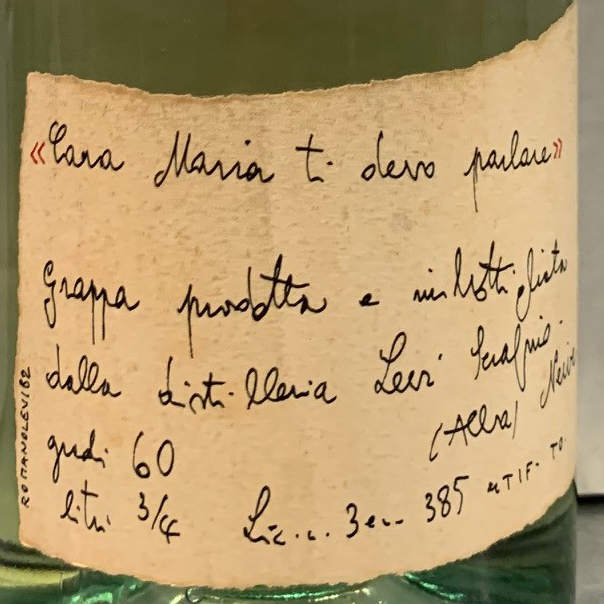 «Cara Maria ti devo parlare»
Grappa prodotta e imbottigliata
dalla distilleria Levi Serafino
(Alba) Neive
gradi 60
litri 3/4
Lic. n. 3 en. 385 UTIF. TO.
ROMANOLEVI82